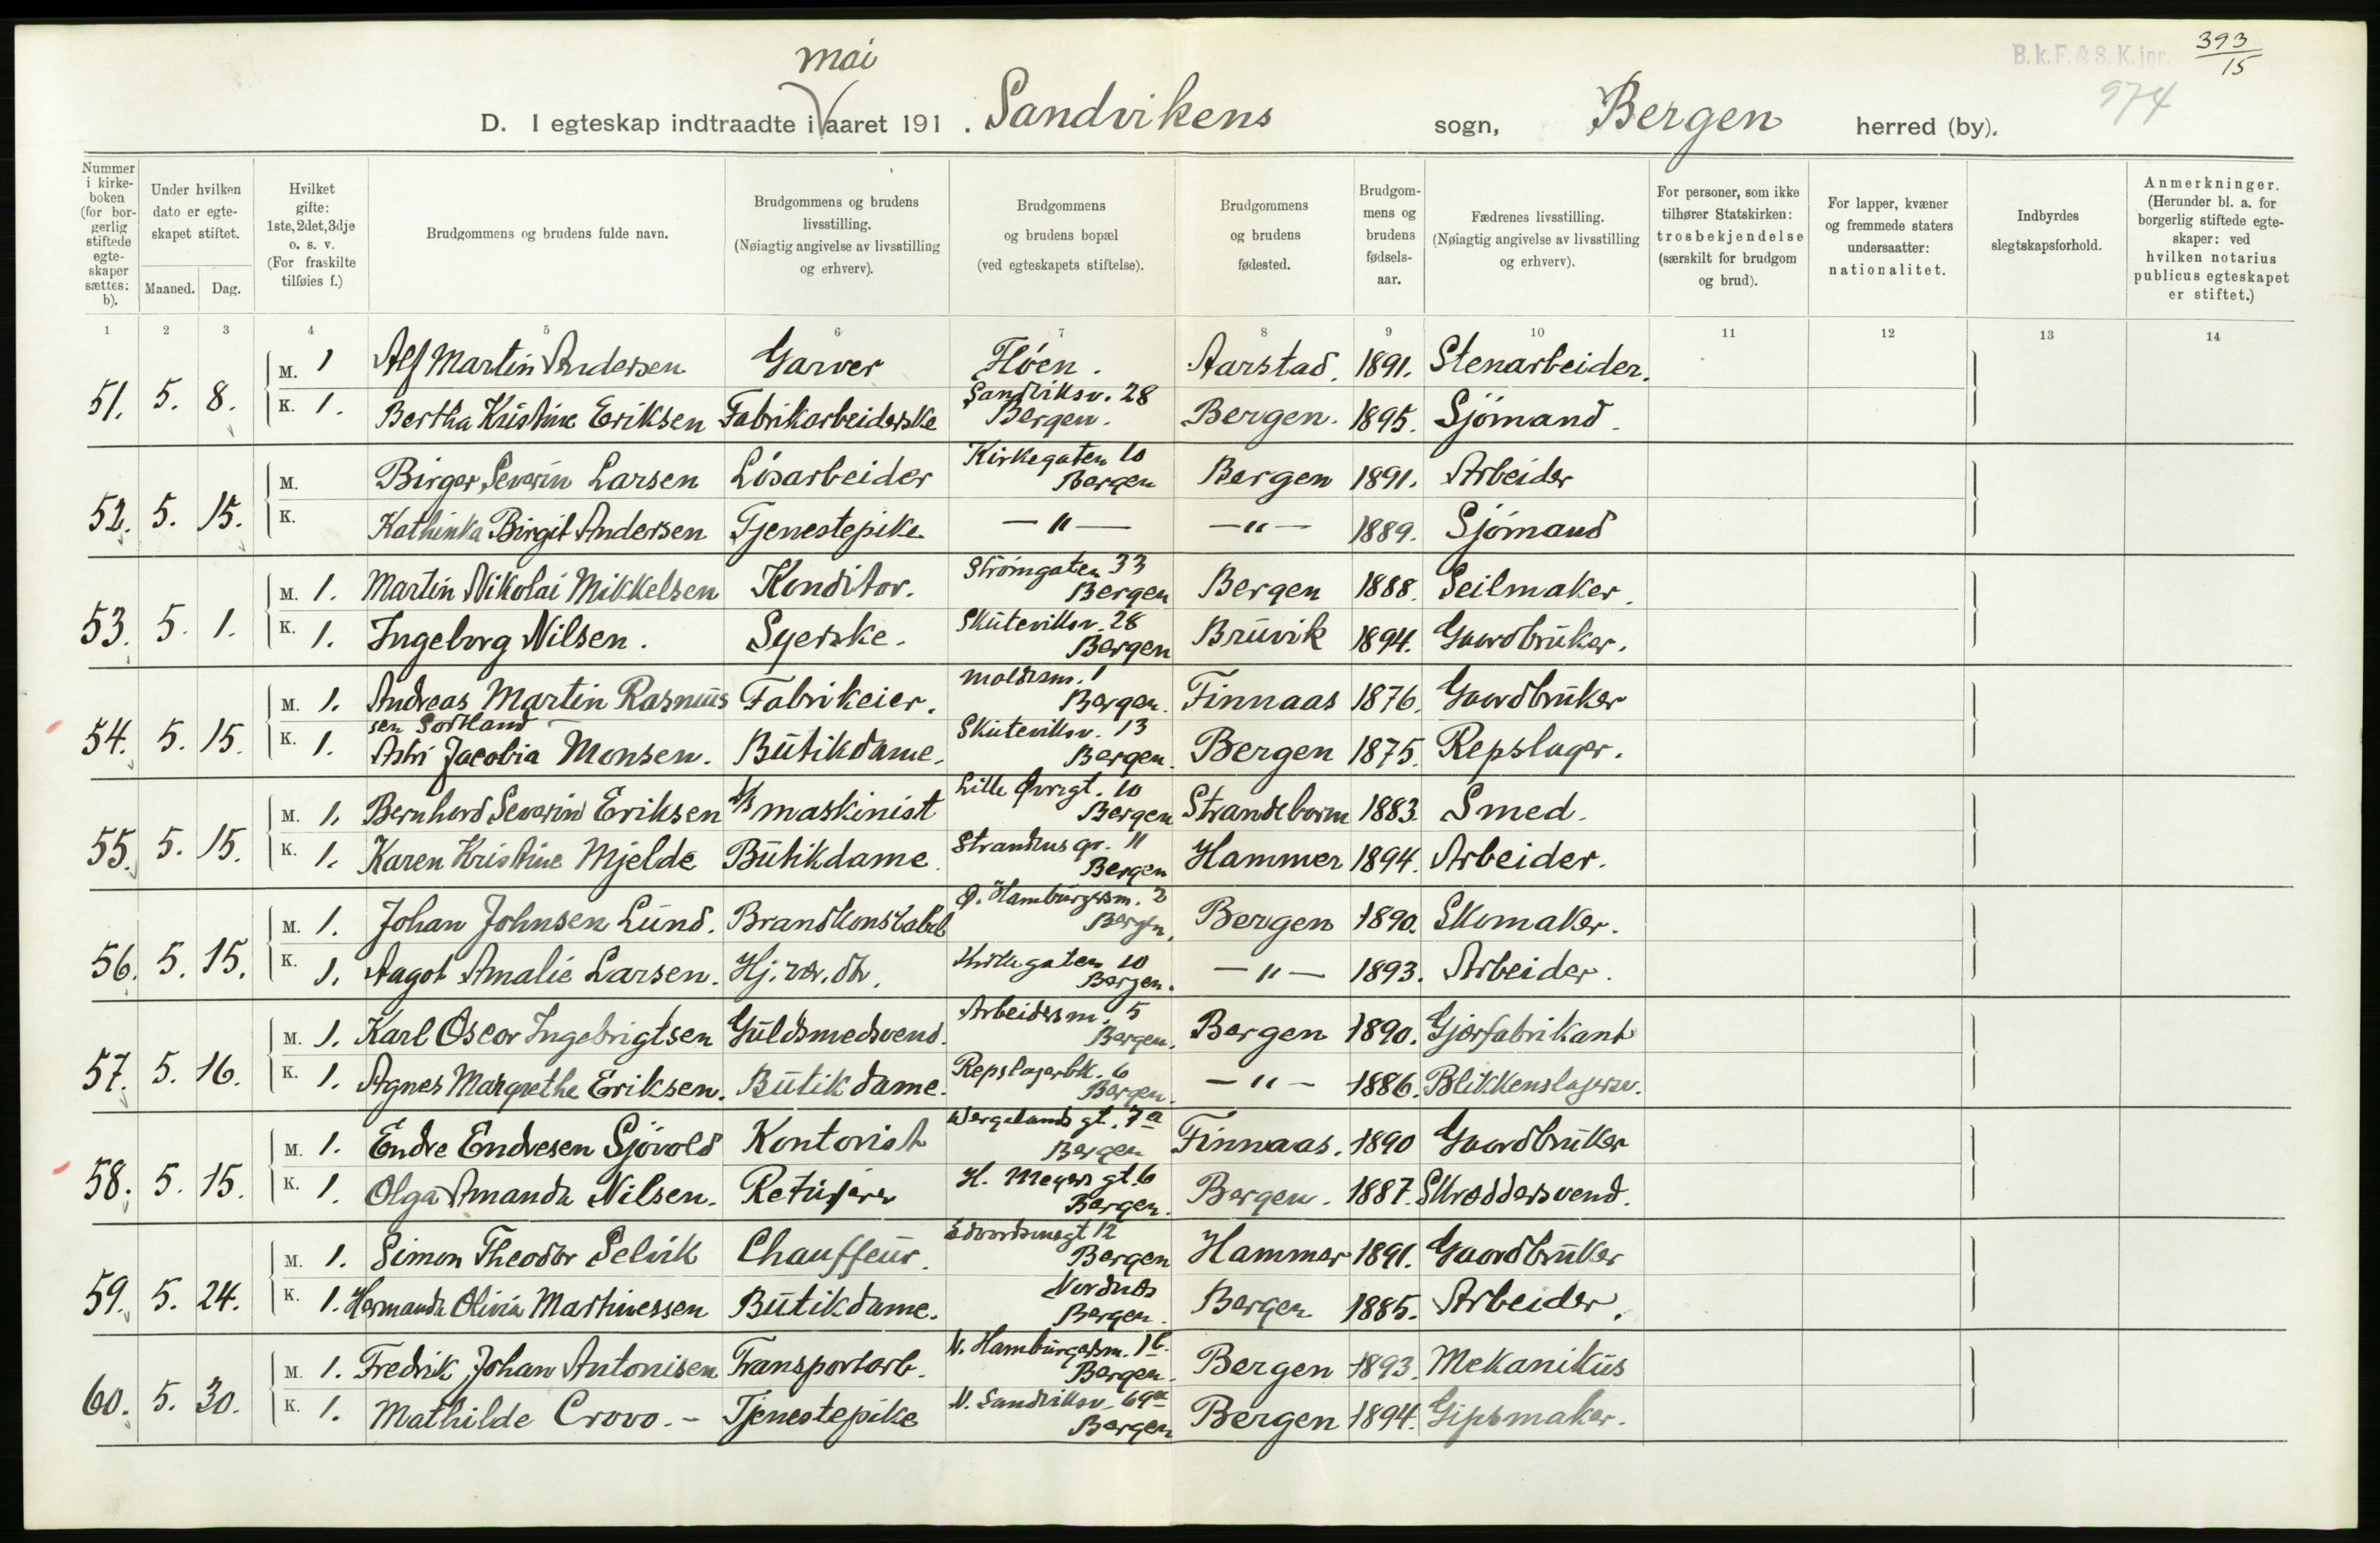 mai
393
15
B.k.F. & S.K. jnr.
974
D. I egteskap indtraadte i V aaret 191 . Sandvikens sogn, Bergen herred (by).
Nummer i kirke-boken (for bor-gerlig stiftede egte-skaper sættes: b).
Under hvilken dato er egte-skapet stiftet.
Maaned. Dag.
Hvilket gifte: 1ste, 2det, 3dje o. s. v. (For fraskilte tilføies f.)
Brudgommens og brudens fulde navn.
Brudgommens og brudens livsstilling. (Nøiagtig angivelse av livsstilling og erhverv).
Brudgommens og brudens bopæl (ved egteskapets stiftelse).
Brudgommens og brudens fødested.
Brudgom-mens og brudens fødsels-aar.
Fædrenes livsstilling. (Nøiagtig angivelse av livsstilling og erhverv).
For personer, som ikke tilhører Statskirken: trosbekjendelse (særskilt for brudgom og brud).
For lapper, kvæner og fremmede staters undersaatter: nationalitet.
Indbyrdes slegtskapsforhold.
Anmerkninger. (Herunder bl. a. for borgerlig stiftede egte-skaper: ved hvilken notarius publicus egteskapet er stiftet.)
1 2 3 4 5 6 7 8 9 10 11 12 13 14
51. 5. 8. M. 1 Alf Martin Andersen Garver Flöen. Aarstad. 1891. Stenarbeider.
K. 1. Bertha Kristine Eriksen Fabrikarbeiderske Sandviksv. 28 Bergen. Bergen. 1895. Sjömand.
52. 5. 15. M. Birger Severin Larsen Lösarbeider Kirkegaten 10 Bergen Bergen 1891. Arbeider
K. Kathinka Birgit Andersen Tjenestepike — " — — " — 1889. Sjömand
53. 5. 1. M. 1. Martin Nikolai Mikkelsen Konditor. Strömgaten 33 Bergen Bergen 1888. Seilmaker.
K. 1. Ingeborg Nilsen. Syerske. Skuteviksv. 28 Bergen Bruvik 1894. Gaardbruker.
54. 5. 15. M. 1. Andreas Martin Rasmus Fabrikeier. Moldesm. 1 Bergen. Finnaas 1876. Gaardbruker
sen Sortland
K. 1. Astri Jacobia Monsen. Butikdame. Skuteviksv. 13 Bergen. Bergen 1875. Repslager.
55. 5. 15. M. 1. Bernhard Severin Eriksen d/s maskinist Lille Øvregt. 10 Bergen Strandebarm 1883. Smed.
K. 1. Karen Kristine Mjelde Butikdame. 11 Bergen Hammer 1894. Arbeider.
56. 5. 15. M. 1. Johan Johnsen Lund. Brandkonstabel Ø. Hamburgersm. 2 Bergen. Bergen 1890. Skomaker.
K. 1. Aagot Amalie Larsen. Hj. vær. dtr. Kirkegaten 10 Bergen. — " — 1893. Arbeider.
57. 5. 16. M. 1. Karl Oscar Ingebrigtsen Guldsmedsvend. Arbeidersm. 5 Bergen. Bergen 1890. Gjærfabrikant
K. 1. Agnes Margrethe Eriksen. Butikdame. Repslagerbk. 6 Bergen. — " — 1886. Blikkenslagersv.
58. 5. 15. M. 1. Endre Endresen Sjövold Kontorist Wergelands gt. 7a Bergen Finnaas. 1890 Gaardbruker
K. 1. Olga Amanda Nilsen. Retusjerer H. Meyers gt. 6 Bergen. Bergen. 1887. Skræddersvend.
59. 5. 24. M. 1. Simon Theodor Selvik Chauffeur. 12 Bergen Hammer 1891. Gaardbruker
K. 1. Hermanda Olivia Martinessen Butikdame. Nordnes Bergen. Bergen 1885. Arbeider.
60. 5. 30. M. 1. Fredrik Johan Antonisen Transportarb. N. Hamburgersm. 16. Bergen. Bergen 1893. Mekanikus
K. 1. Mathilde Crovo. – Tjenestepike N. Sandviksv. 69a Bergen Bergen 1894. Gipsmaker.